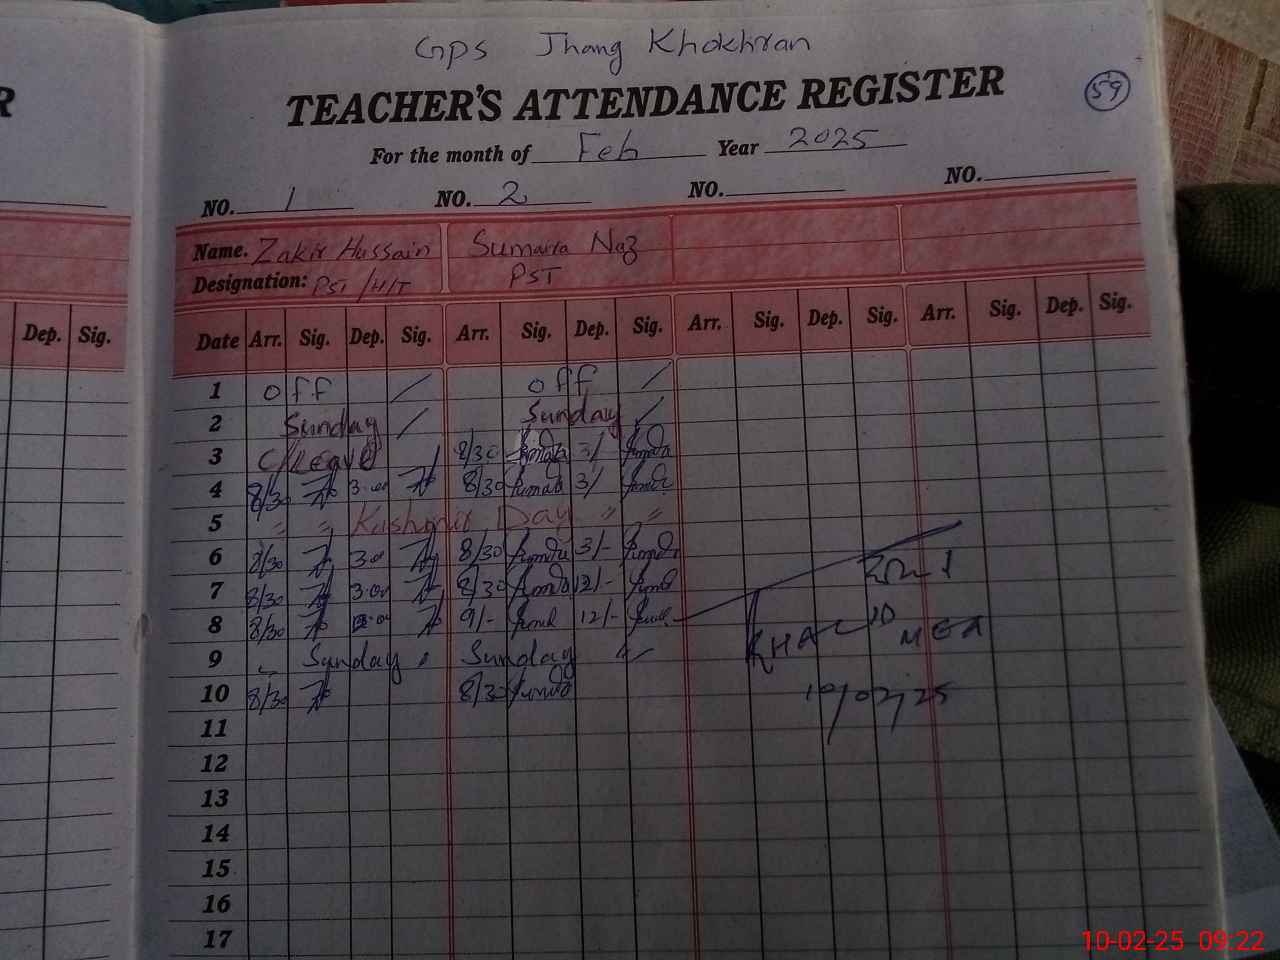 GPS Jhang Khokhran
R TEACHER'S ATTENDANCE REGISTER 59
For the month of Feb Year 2025
NO. 1 NO. 2 NO. NO.
Name. Zakir Hussain Sumaira Naz
Designation: PST /H/T PST
Dep. Sig. Date Arr. Sig. Dep. Sig. Arr. Sig. Dep. Sig. Arr. Sig. Dep. Sig. Arr. Sig. Dep. Sig.
1 off off
2 Sunday Sunday
3 C/Leave 8/30 3/
4 8/30 3:00 8/30 3/
5 " " Kashmir Day " "
6 8/30 3:00 8/30 3/-
7 8/30 3:00 8/30 12/-
8 8/30 9/- 12/-
9 Sunday Sunday
10 8/30 8/30
KHALID MEA
10/02/25
11
12
13
14
15
16
17
10-02-25 09:22